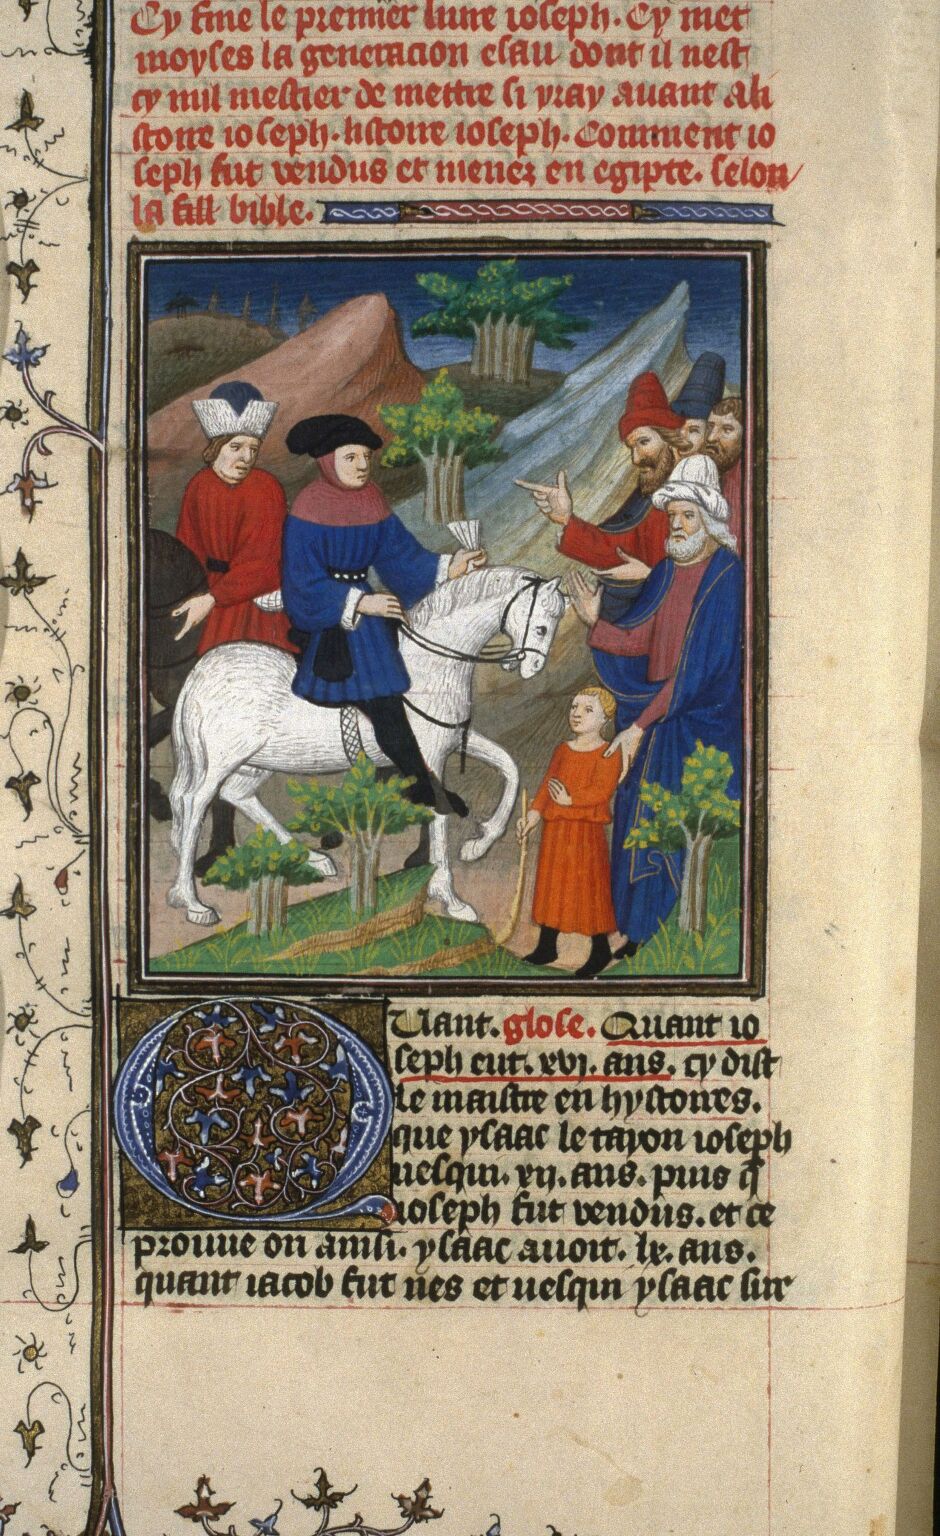 Cy fine le premier liure ioseph. Cy met
moyses la generacion esau dont il nest
cy mil mestier de mettre si vray auant ali
stoire ioseph. histoire ioseph. Comment io
seph fut vendus et menez en egipte. selon
la bible.
Uant. glose. Quant io
seph eut. xvj. ans. cy dist
le maistre en hystoires.
que ysaac le tayon ioseph
uesqui. xij. ans. puis q̄
ioseph fut vendus. et ce
prouue on ainsi. ysaac auoit. lx. ans.
quant iacob fut nes et uesqui ysaac sur